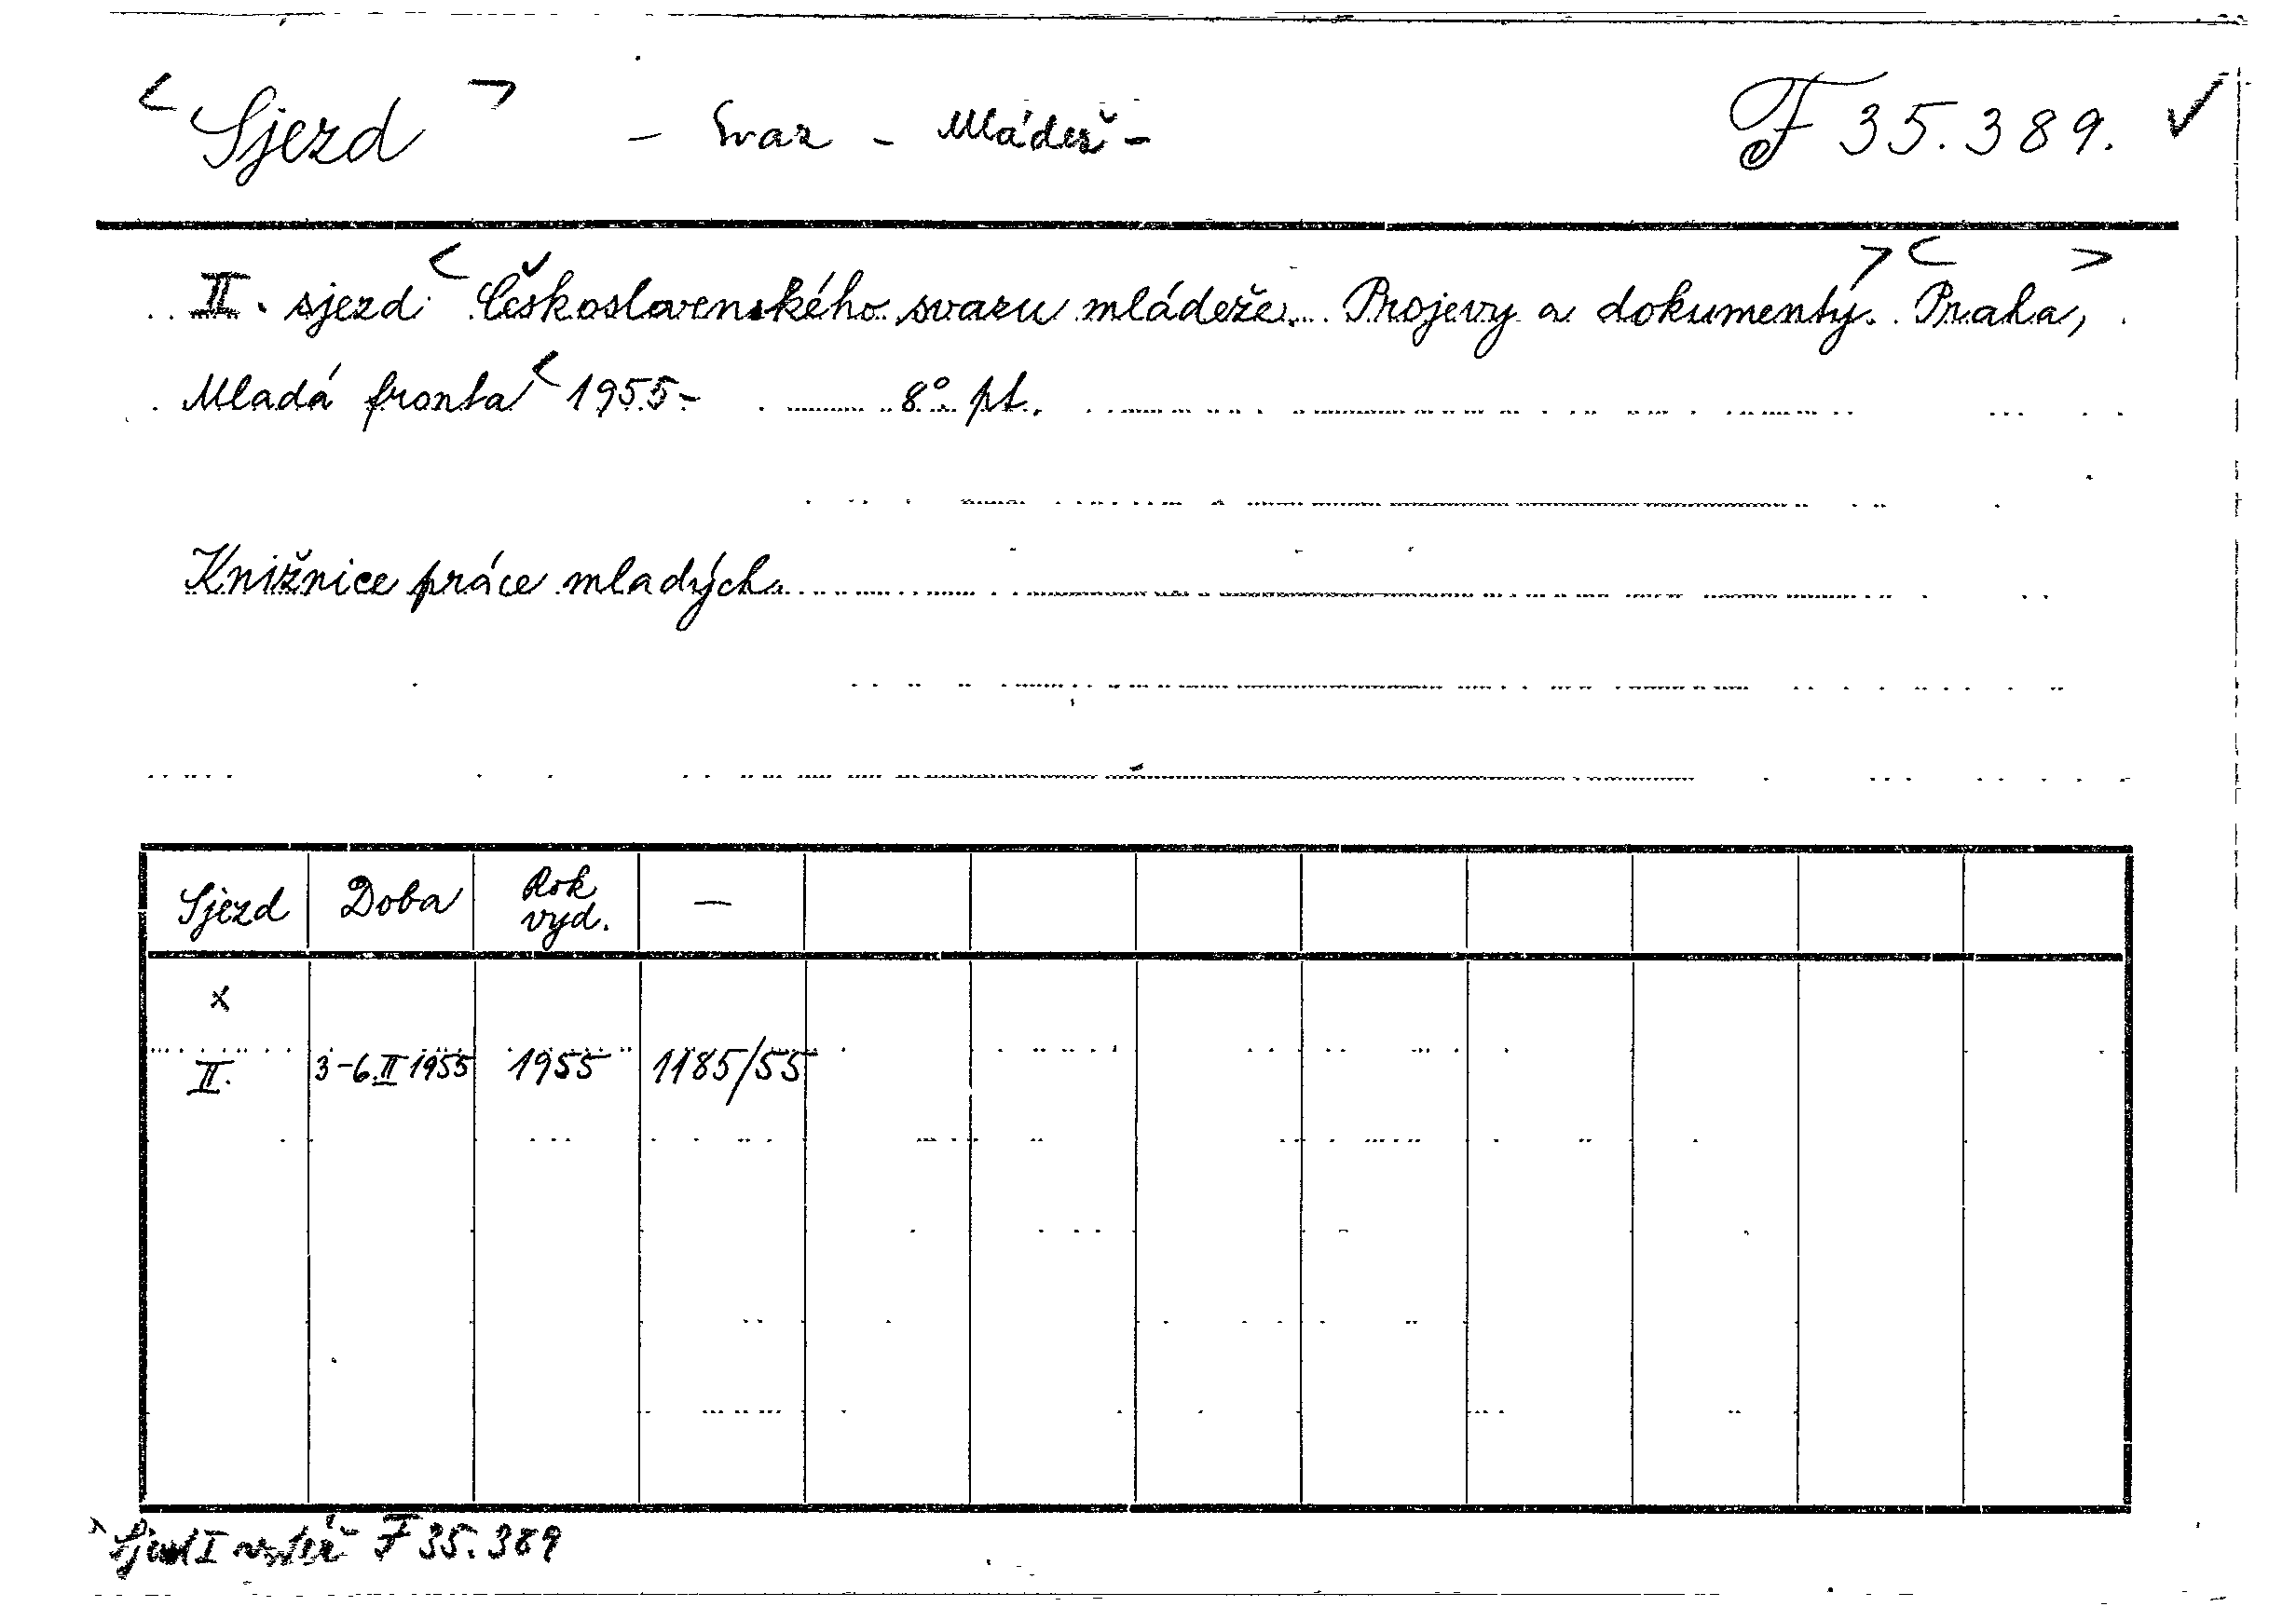 < Sjezd > - Svaz - Mládež - F 35.389. ✓
II. sjezd < Československého svazu mládeže. Projevy a dokumenty. > < Praha, >
Mladá fronta < 1955- 8° pl.
Knižnice práce mladých.
Sjezd Doba Rok vyd. —
x
II. 3-6.II 1955 1955 1185/55
x Sjezd I F 35.389